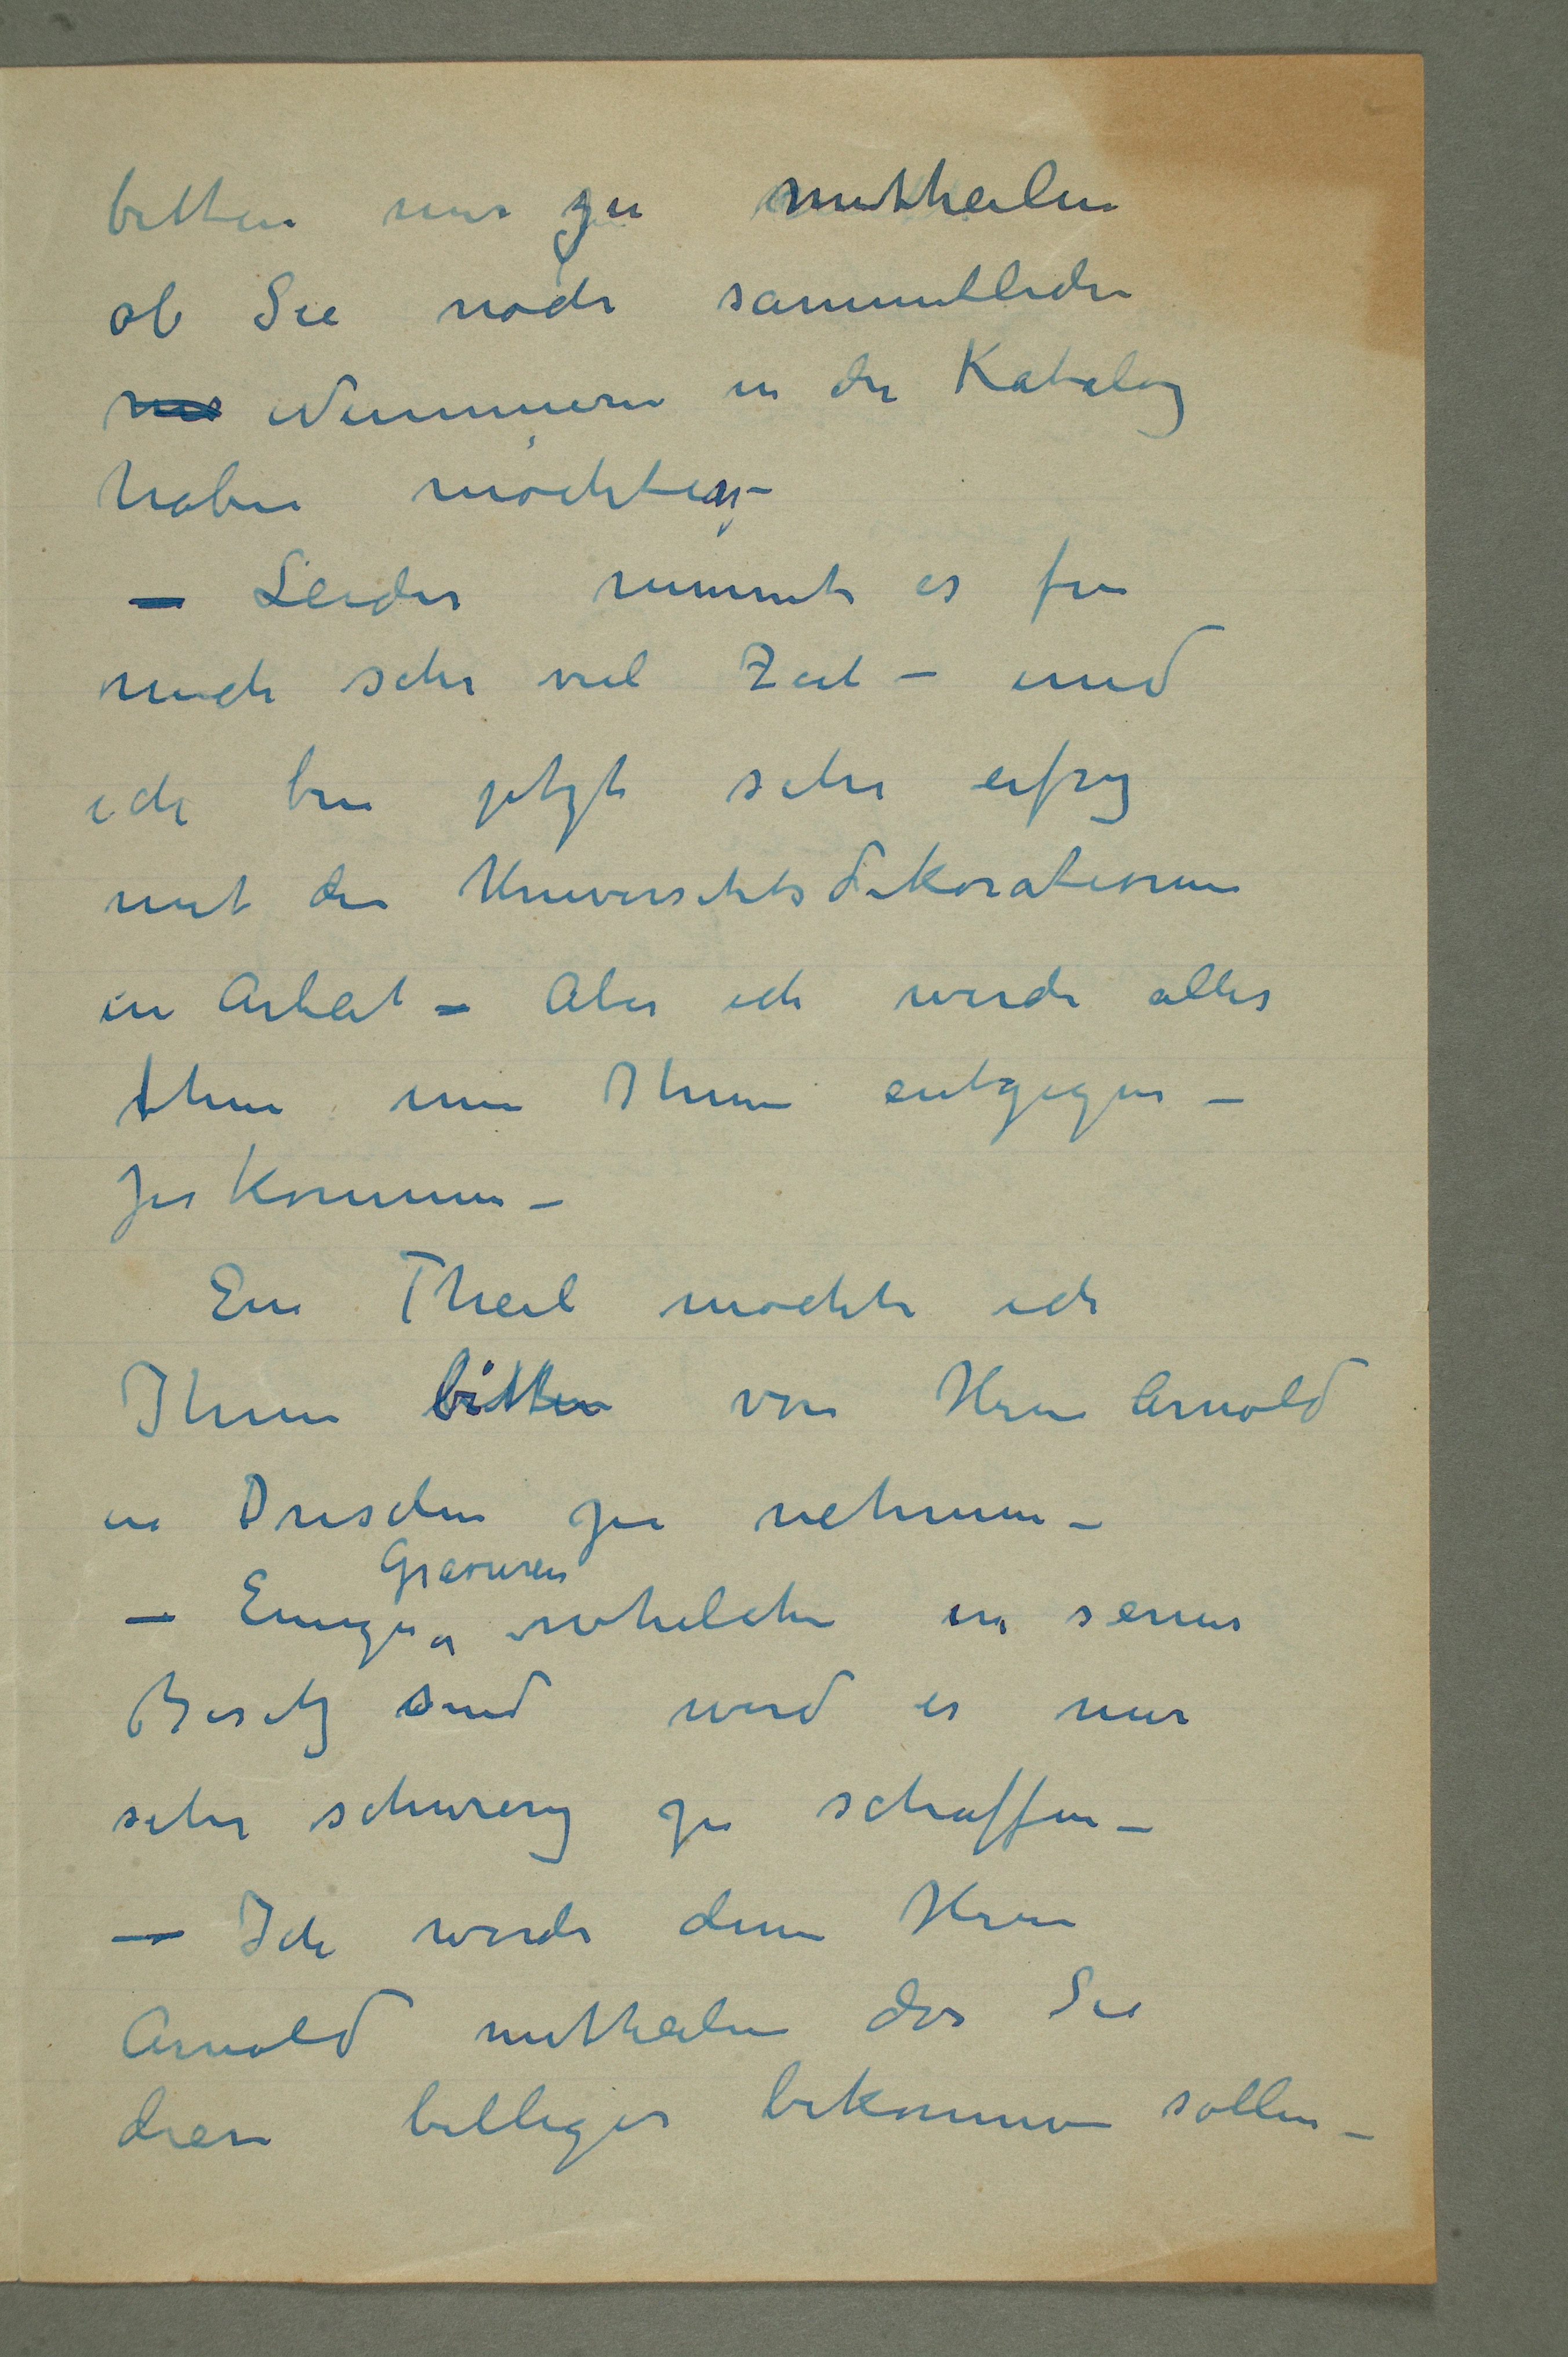 bitten mir zu mittheilen
ob Sie noch sämmtliche
Nummern in der Katalog
haben möchten –
– Leider nimmt es für
mich sehr viel Zeit – und
ich bin jetzt sehr eifrig
mit den Universitetsdekorationen
in Arbeit – Aber ich werde alles
thun um Ihnen entgegen –
zu kommen –
Ein Theil möchte ich
Ihnen bitten von Herrn Arnold
in Dresden zu nehmen –
Gravuren
– Einige whelche in seiner
Besitz sind wird es mir
sehr schwierig zu schaffen –
– Ich werde dem Herrn
Arnold mittheilen das Sie
diese billiger bekommen sollen –